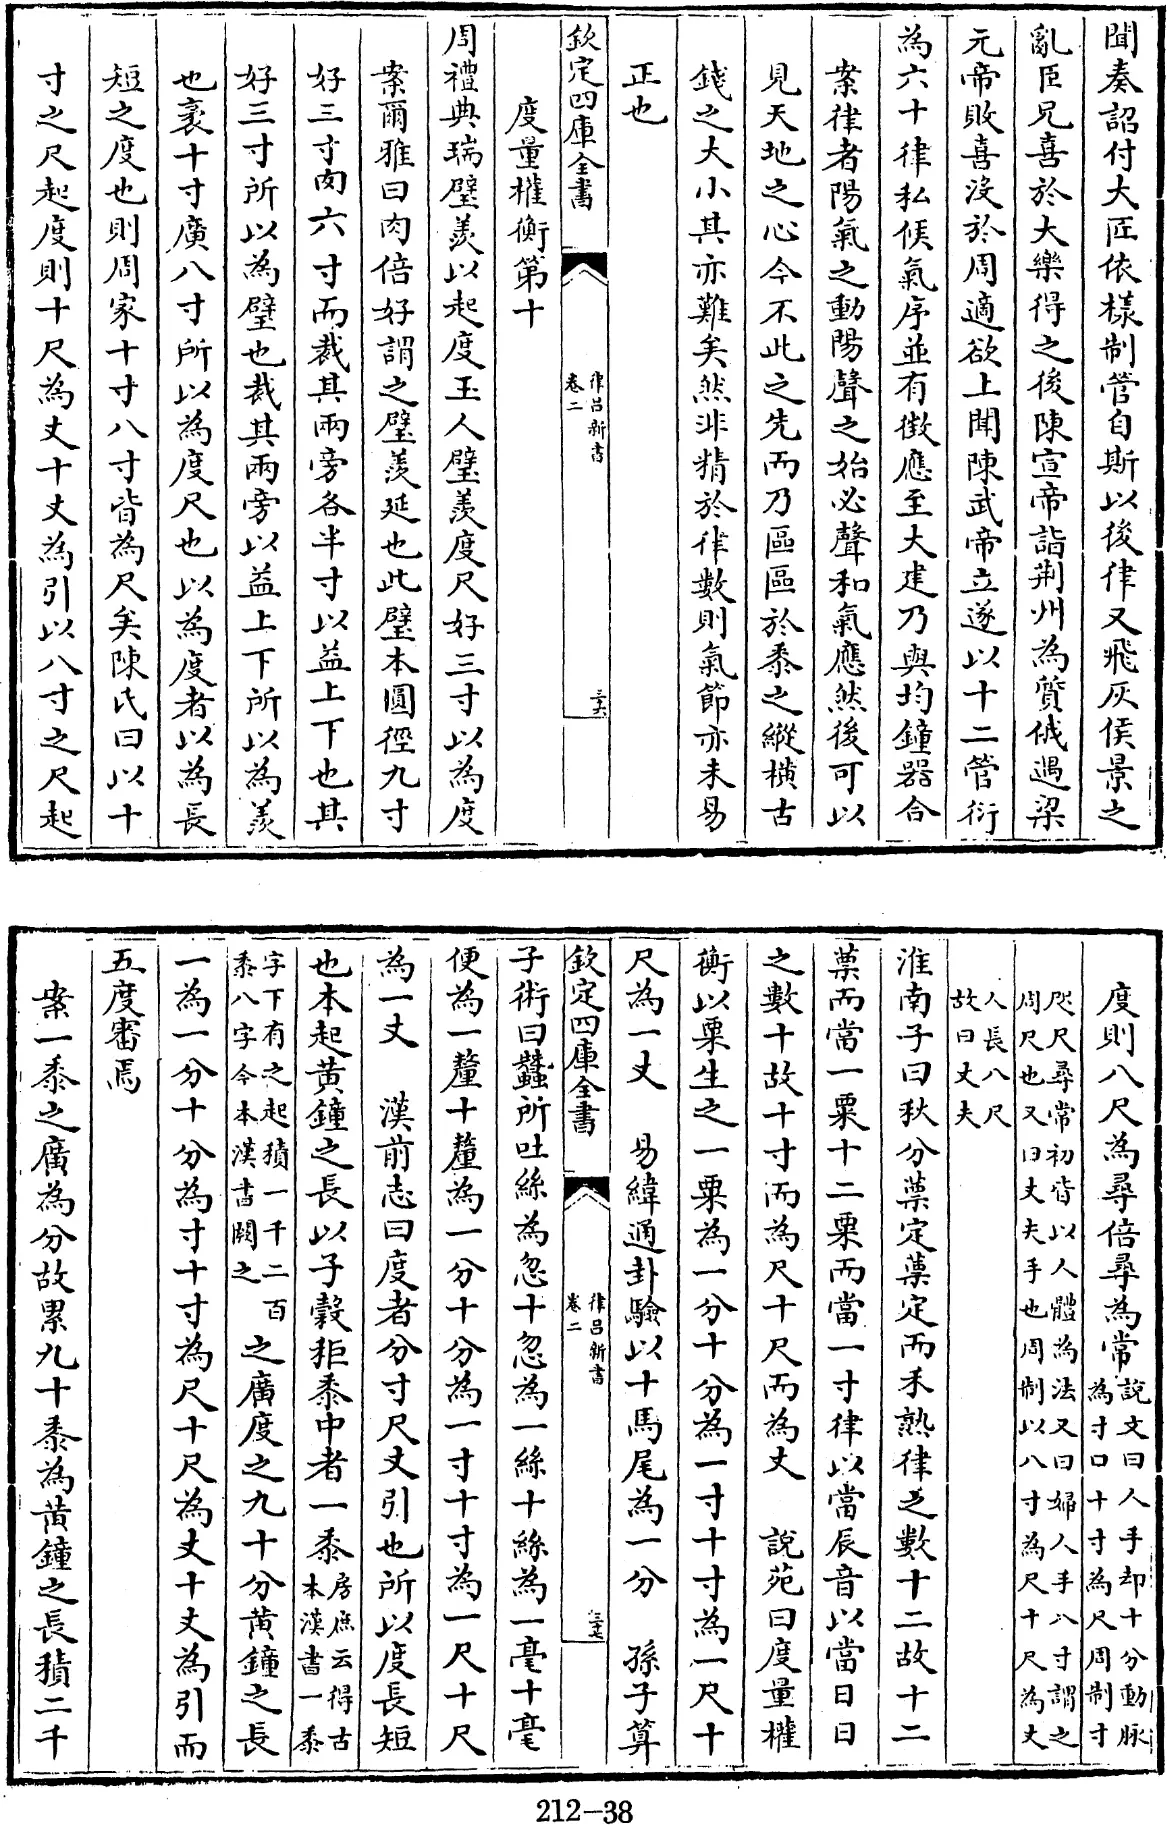 聞奏詔付大匠依樣制管自斯以後律又飛灰侯景之
亂臣兄喜於大樂得之後陳宣帝詣荆州為質俄遇梁
元帝敗喜沒於周適欲上聞陳武帝立遂以十二管衍
為六十律私候氣序並有徴應至大建乃與均鐘器合
案律者陽氣之動陽聲之始必聲和氣應然後可以
見天地之心今不此之先而乃區區於黍之縱横古
錢之大小其亦難矣然非精於律數則氣節亦未易
正也
欽定四庫全書
律吕新書
卷二
三六
度量權衡第十
周禮典瑞璧羨以起度玉人璧羨度尺好三寸以為度
案爾雅曰肉倍好謂之璧羨延也此璧本圓徑九寸
好三寸肉六寸而裁其兩旁各半寸以益上下也其
好三寸所以為璧也裁其兩旁以益上下所以為羨
也袤十寸廣八寸所以為度尺也以為度者以為長
短之度也則周家十寸八寸皆為尺矣陳氏曰以十
寸之尺起度則十尺為丈十丈為引以八寸之尺起
度則八尺為尋倍尋為常說文曰人手却十分動脉
為寸口十寸為尺周制寸
咫尺尋常初皆以人體為法又曰婦人手八寸謂之
周尺也又曰丈夫手也周制以八寸為尺十尺為丈
人長八尺
故曰丈夫
淮南子曰秋分蔈定蔈定而禾熟律之數十二故十二
蔈而當一粟十二粟而當一寸律以當辰音以當日日
之數十故十寸而為尺十尺而為丈　說苑曰度量權
衡以粟生之一粟為一分十分為一寸十寸為一尺十
尺為一丈　易緯通卦驗以十馬尾為一分　孫子算
欽定四庫全書
律吕新書
卷二
三七
子術曰蠶所吐絲為忽十忽為一絲十絲為一毫十毫
便為一釐十釐為一分十分為一寸十寸為一尺十尺
為一丈　漢前志曰度者分寸尺丈引也所以度長短
也本起黄鐘之長以子穀秬黍中者一黍房庶云得古
本漢書一黍
字下有之起積一千二百
黍八字今本漢書闕之
之廣度之九十分黄鐘之長
一為一分十分為寸十寸為尺十尺為丈十丈為引而
五度審焉
案一黍之廣為分故累九十黍為黄鐘之長積二千
212-38